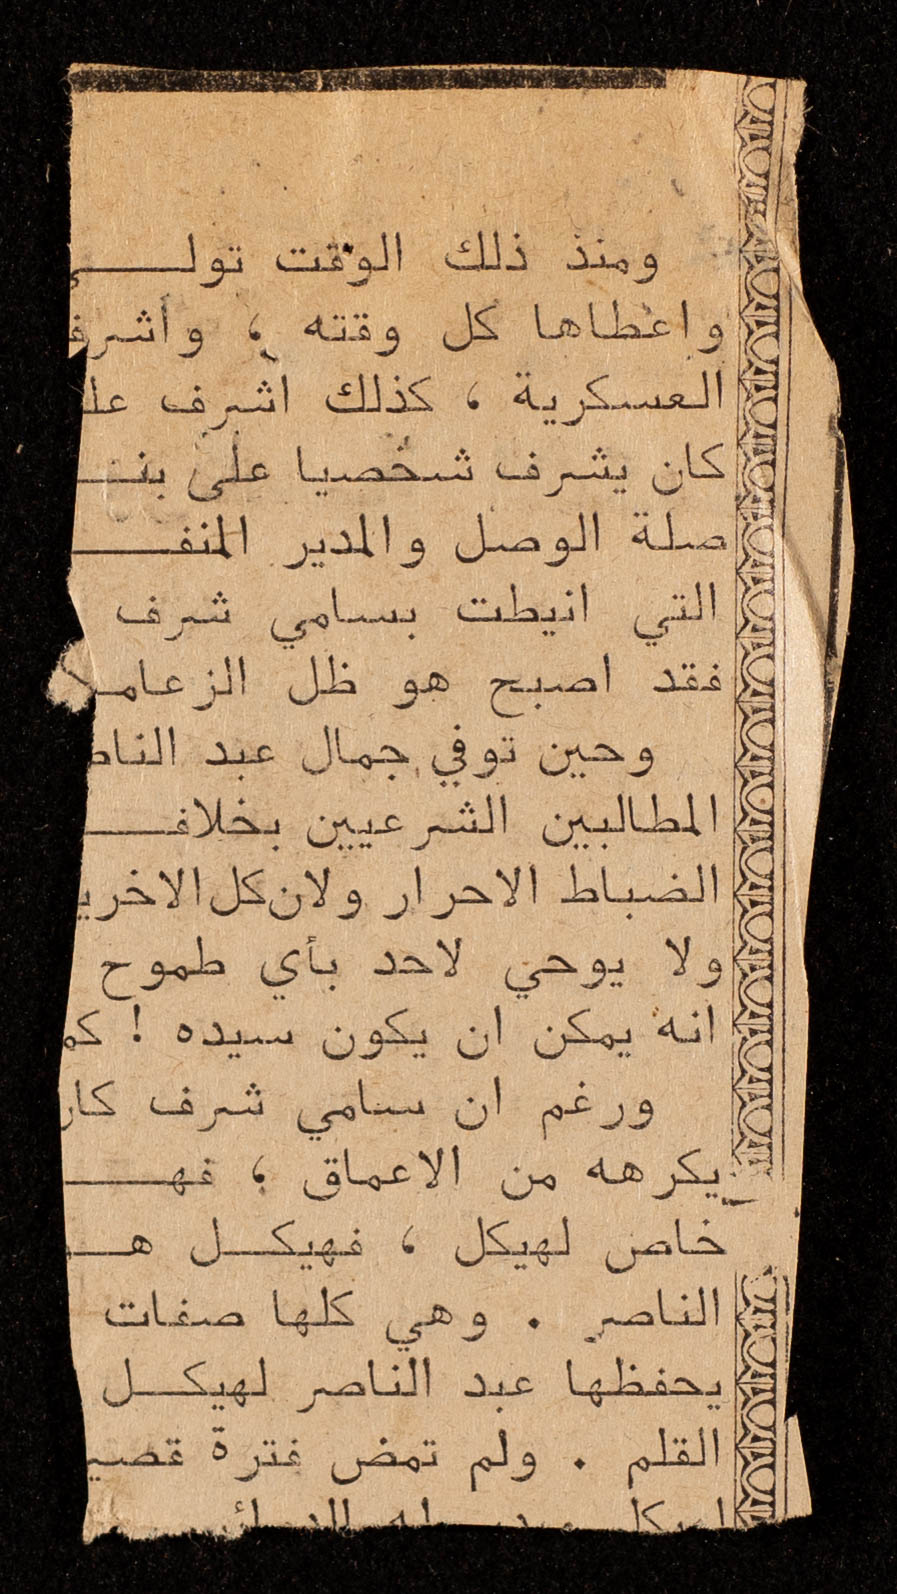 ومنذ ذلك الوقت تولى
واعطاها كل وقته ، وأشرف
العسكرية ، كذلك اشرف علـ
كان يشرف شخصيا على بنـ
صلة الوصل والمدير المنفـ
التي انيطت بسامي شرف
فقد اصبح هو ظل الزعامـ
وحين توفي جمال عبد الناصـ
المطالبين الشرعيين بخلافـ
الضباط الاحرار ولان كل الاخريـ
ولا يوحي لاحد بأي طموح
انه يمكن ان يكون سيده ! كمـ
ورغم ان سامي شرف كان
يكرهه من الاعماق ، فهـ
خاص لهيكل ، فهيكل هـ
الناصر . وهي كلها صفات
يحفظها عبد الناصر لهيكل
القلم . ولم تمض فترة قصيـ